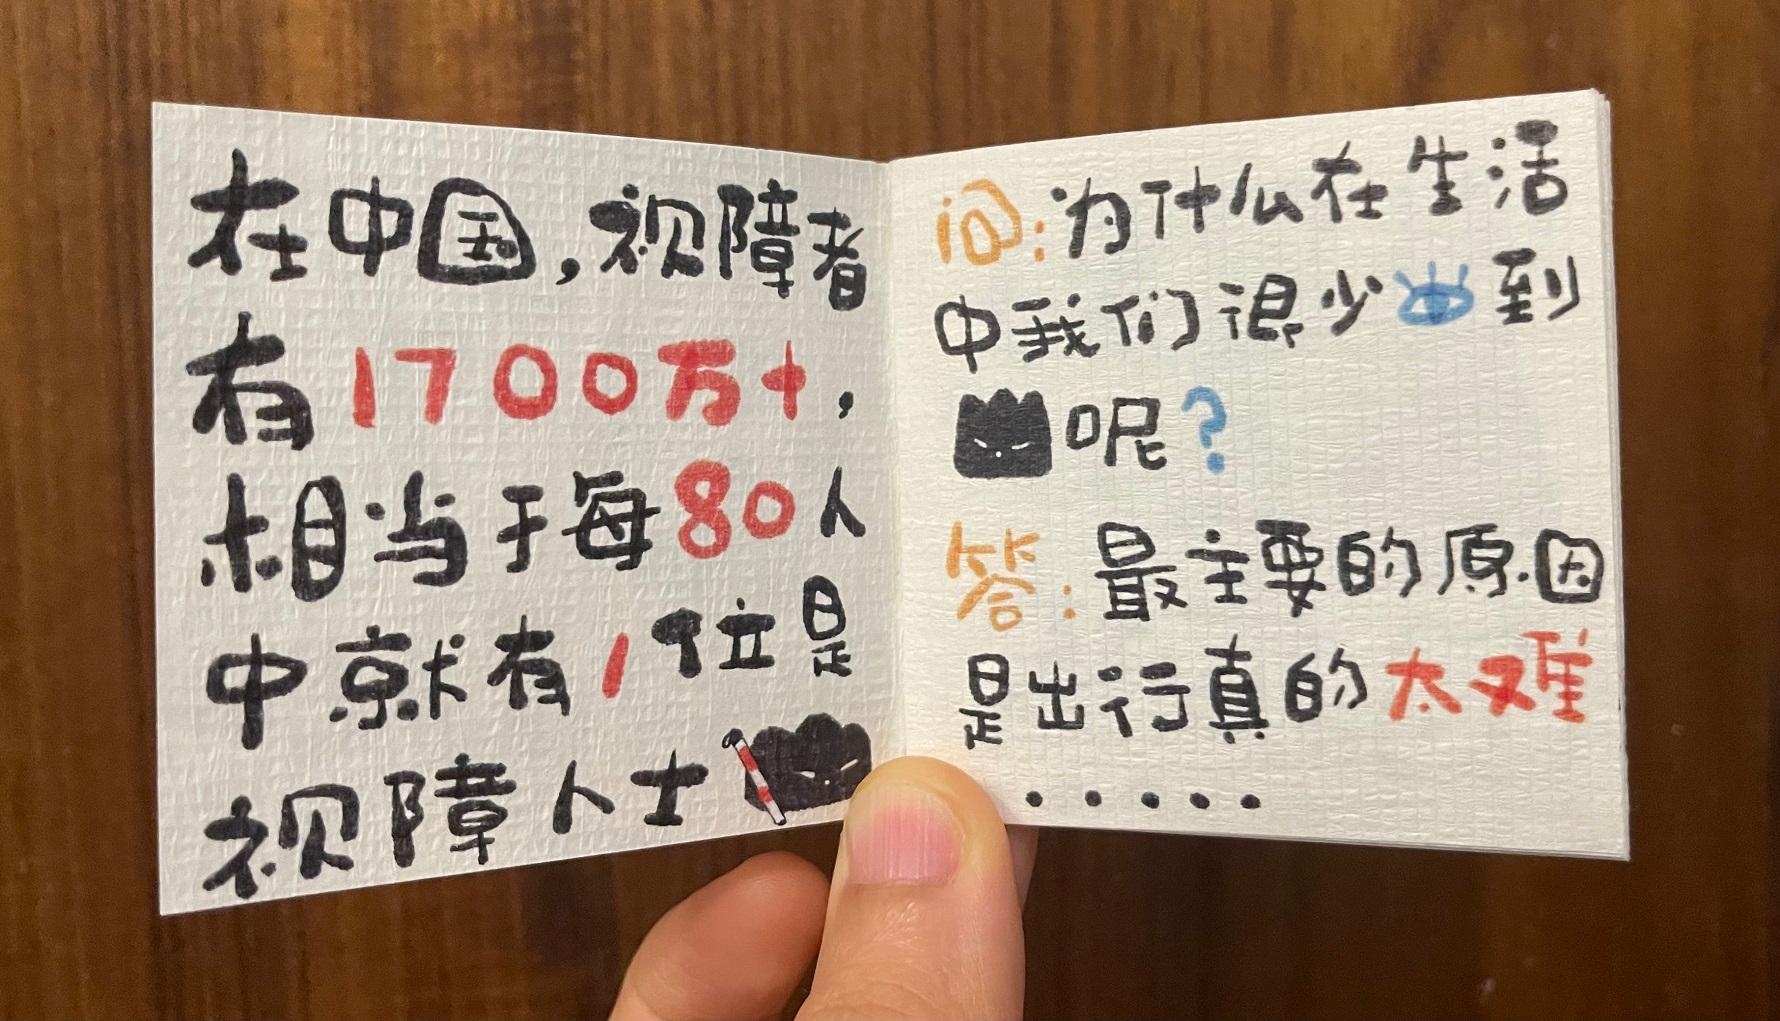 在中国,视障者
有1700万+,
相当于每80人
中就有1位是
视障人士
问:为什么在生活
中我们很少到
呢?
答:最主要的原因
是出行真的太难
.....